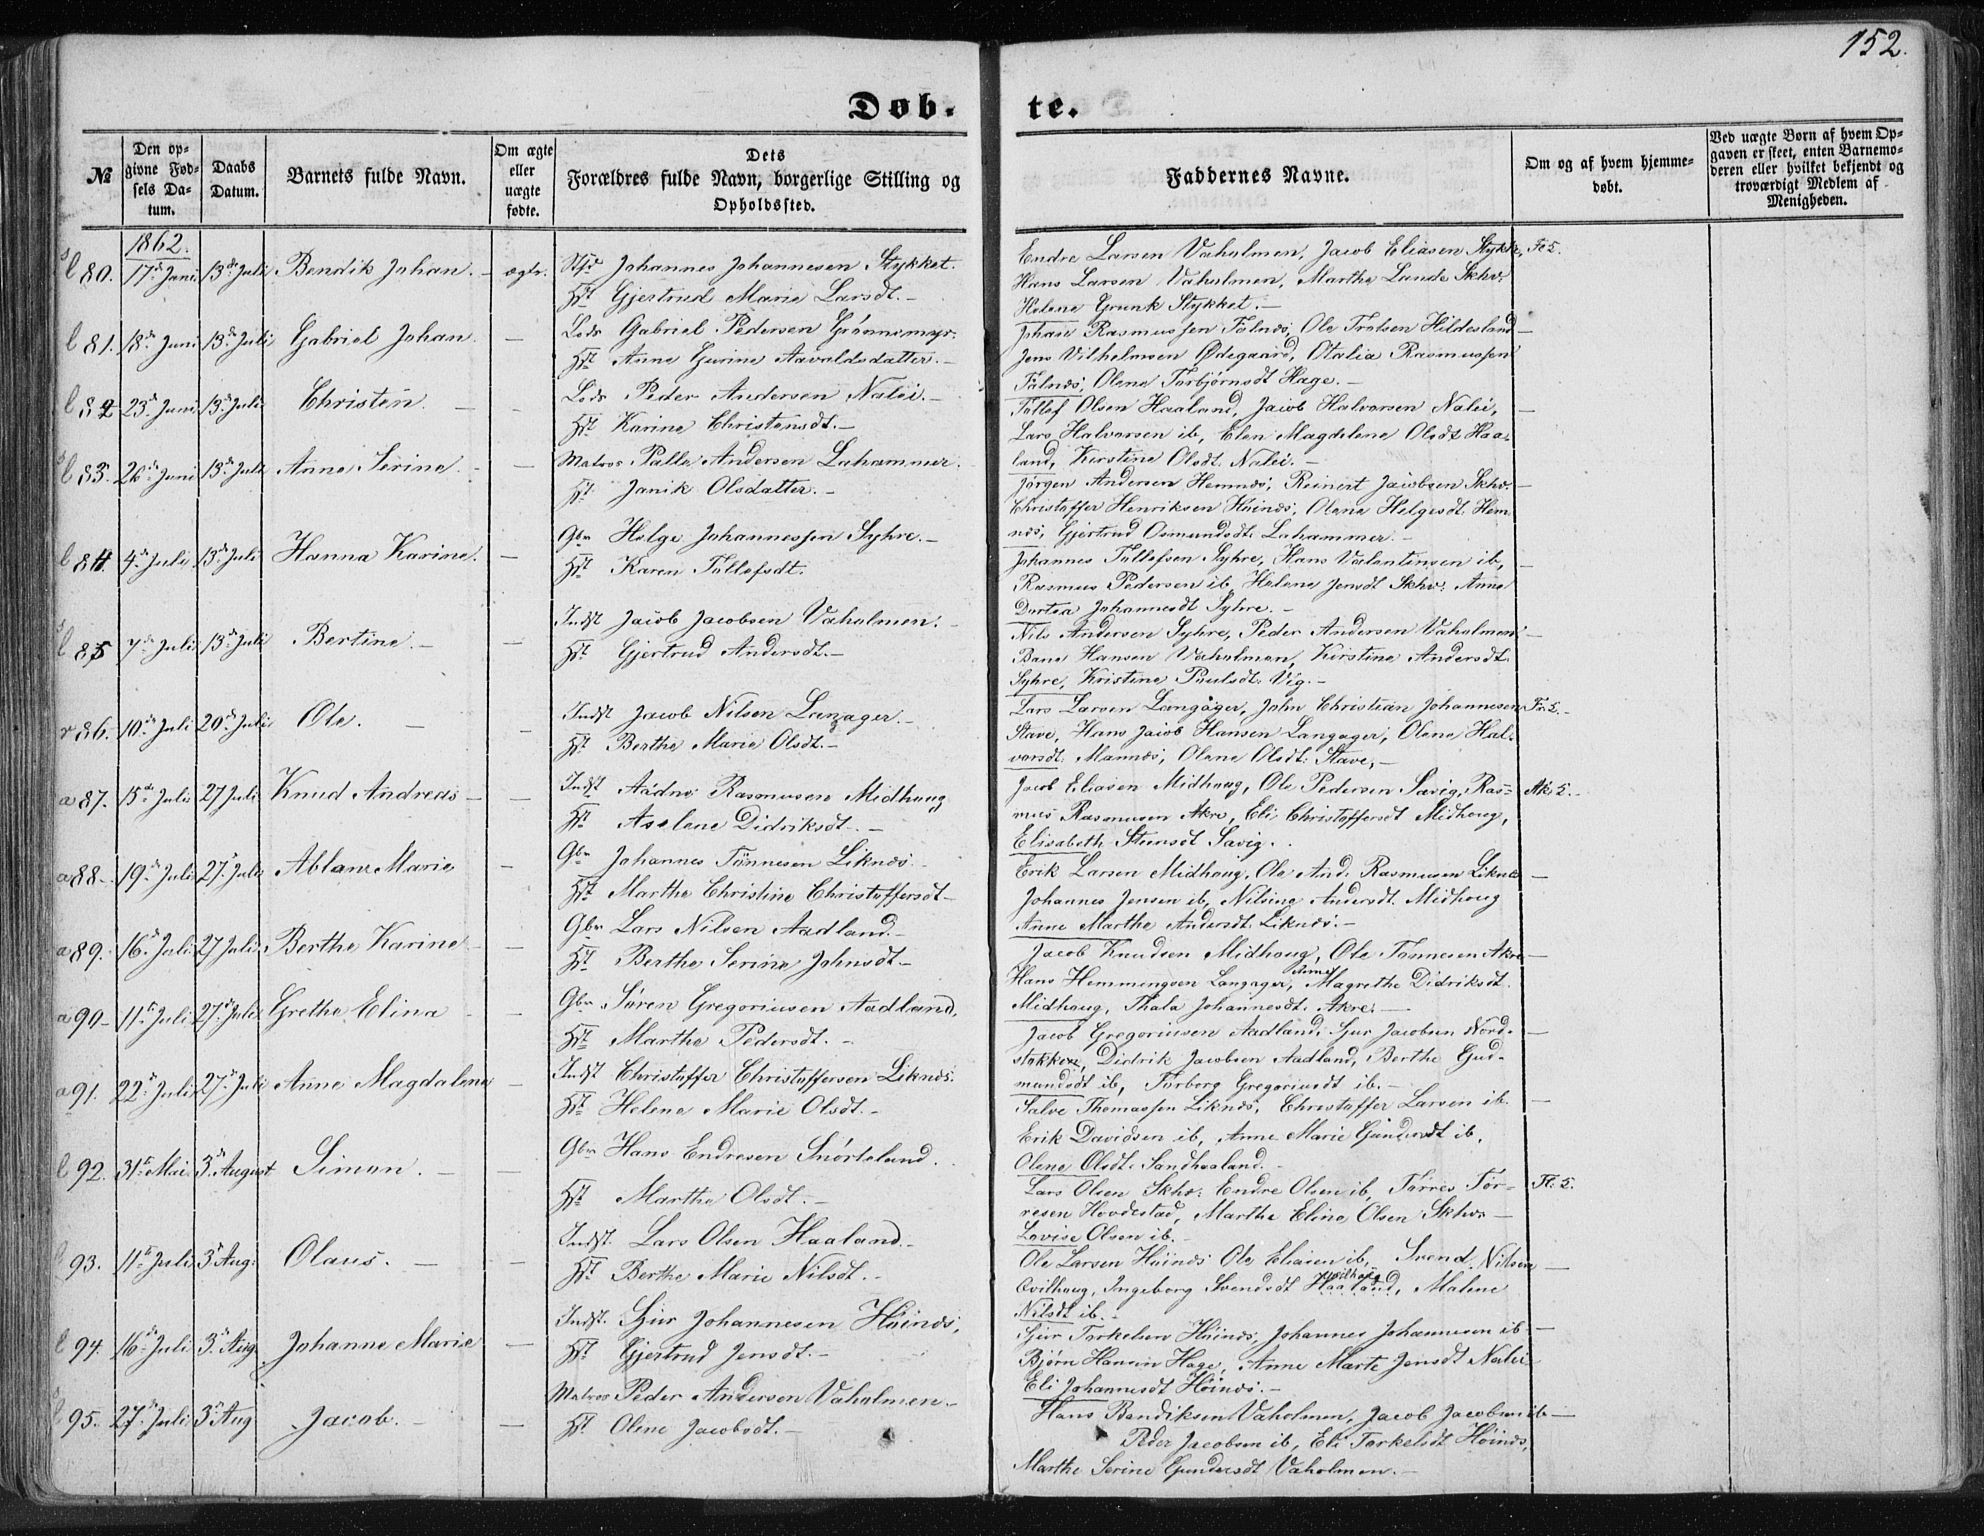 152.
Døb-
te.
№
Den op-
givne Fød-
sels Da-
tum.
Daabs
Datum.
Barnets fulde Navn.
Om ægte
eller
uægte
fødte.
Dets
Forældres fulde Navn, borgerlige Stilling og
Opholdssted.
Faddernes Navne.
Om og af hvem hjemme-
døbt.
Ved uægte Børn af hvem Op-
gaven er skeet, enten Barnemo-
deren eller hvilket bekjendt og
troværdigt Medlem af
Menigheden.
1862.
80. 17de Juni 13de Juli Bendik Johan. - ægte. Johannes Johannesen Stykket.
Gjertrud Marie Larsdt. -
Endre Larsen Vaholmen, Jacob Eliasen Stykke,
Hans Larsen Vaholmen, Marthe Lunde Skhv:
Helene Grunk Stykket. -
81. 18de Juni 13de Juli Gabriel Johan. - Lods Gabriel Pedersen Grønnemyr.
Anne Gurine Aavoldsdatter. -
Johan Rasmussen Falnæs, Ole Trolsen Hildesland -
Jens Vilhelmsen Ødegaard, Otalia Rasmussen
Falnæs, Olene Torbjørnsdt Hage. -
82 23de Juni 13de Juli Christen. - Lods Peder Andersen Nalei. -
Karine Christensdt. -
Tollef Olsen Haaland, Jacob Halvorsen Nalei, -
Lars Halvorsen ib, Elen Magdelene Olsdt Haa-
land, Kirstine Olsdt. Nalei. -
83. 26de Juni 13de Juli Anne Serine. - Matros Palle Andersen Lahammer.
Janik Olsdatter. -
Jørgen Andersen Hemnæs, Reinert Jacobsen Skhv. -
Christoffer Henriksen Høinæs, Olene Helgesdt. Hem-
næs, Gjertrud Osmundsdt. Lahammer. -
84. 4de Juli 13de Juli Hanna Karine. - Gbr Helge Johannessen Syhre. -
Karen Tollefsdt.
Johannes Tollefsen Syhre, Hans Valentinsen ib, -
Rasmus Pedersen ib, Helene Jensdt Skhv: Anne
Dortea Johannesdt Syhre. -
85 7de Juli 13de Juli Bertine. - Indst Jacob Jacobsen Vaholmen. -
Gjertrud Andersdt. -
Nils Andersen Syhre, Peder Andersen Vaholmen -
Hansen Vaholmen, Kirstine Andersdt.
Syhre, Kristine Poulsdt. Vig. -
86. 10de Juli 20de Juli Ole. - Indst Jacob Nilsen Langager. -
Berthe Marie Olsdt. -
Lars Larsen Langager, John Christian Johannesen
Stave, Hans Jacob Hansen Langager, Olene Hal-
vorsdt. Mannæs, Olene Olsdt. Stave, -
87. 15de Juli 27 Juli Knud Andreas - Indst Aadne Rasmusen Midhaug
Aselene Didriksdt. -
Jacob Eliasen Midhaug, Ole Pedersen Sævig, Ras-
mus Rasmusen Akre, Eli Christoffersdt Midhaug,
Elisabeth Steinsdt Sævig.
88. 19de Juli 27de Juli Ablane Marie - Gbr Johannes Tønnesen Liknæs.
Marthe Christine Christoffersdt -
Erik Larsen Midhaug, Ole And. Rasmusen Liknæs -
Johannes Jensen ib, Nilsine Andersdt. Midhaug
Anne Marthe Andersdt. Liknæs. -
89. 16de Juli 27 Juli Berthe Karine - Gbr Lars Nilsen Aadland. -
Berthe Serine Johnsdt. -
Jacob Knudsen Midhaug, Ole Tønnesen Akre -
Hans Hemmingsen Langager, Anne Magrethe Didriksdt.
Midhaug, Thala Johannesdt. Akre. -
90 11te Juli 27de Juli Grethe Elina - Gbr Søren Gregoriusen Aadland,
Marthe Pedersdt. -
Jacob Gregoriusen Aadland, Sjur Jacobsen Nord- -
stokken, Didrik Jacobsen Aadland, Berthe Gud-
mundsdt ib, Torborg Gregoriusdt ib. -
91. 22de Juli 27de Juli Anne Magdalene - Indst Christoffer Christoffersen Liknæs.
Helene Marie Olsdt. -
Salve Thomassen Liknæs, Christoffer Larsen ib. -
Erik Davidsen ib, Anne Marie Gundersdt ib,
Olene Olsdt. Sandhaaland. -
92. 31te Mai 3de August Simon. - Gbr Hans Endresen Snørteland.
Marthe Olsdt. -
Lars Olsen Skhv: Endre Olsen ib, Tørres Tør-
resen Hovdestad, Marthe Eline Olsen Skhv. -
Lovise Olsen ib. -
93. 11te Juli 3de Aug: Olaus. - Indst. Lars Olsen Haaland. -
Berthe Marie Nilsdt. -
Ole Larsen Høinæs Ole Eliasen ib, Svend Nilsen -
Qvilhaug, Ingeborg Svendsdt Haaland, Malene
Nilsdt ib. -
94. 16de Juli 3de Aug. Johanne Marie - Indst. Sjur Johannesen Høinæs,
Gjertrud Jensdt. -
Sjur Torkelsen Høinæs, Johannes Johannesen ib -
Bjørn Hansen Hage, Anne Marte Jensdt Nalei
Eli Johannesdt Høinæs. -
95. 27de Juli 3de Aug Jacob. - Matros Peder Andersen Vaholmen. -
Olene Jacobsdt. -
Hans Bendiksen Vaholmen, Jacob Jacobsen ib -
Peder Jacobsen ib, Eli Torkelsdt Høinæs,
Marthe Serine Gundersdt Vaholmen. -